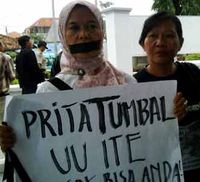 PRITA TUMBAL
UU ITE
BISA ANDA!